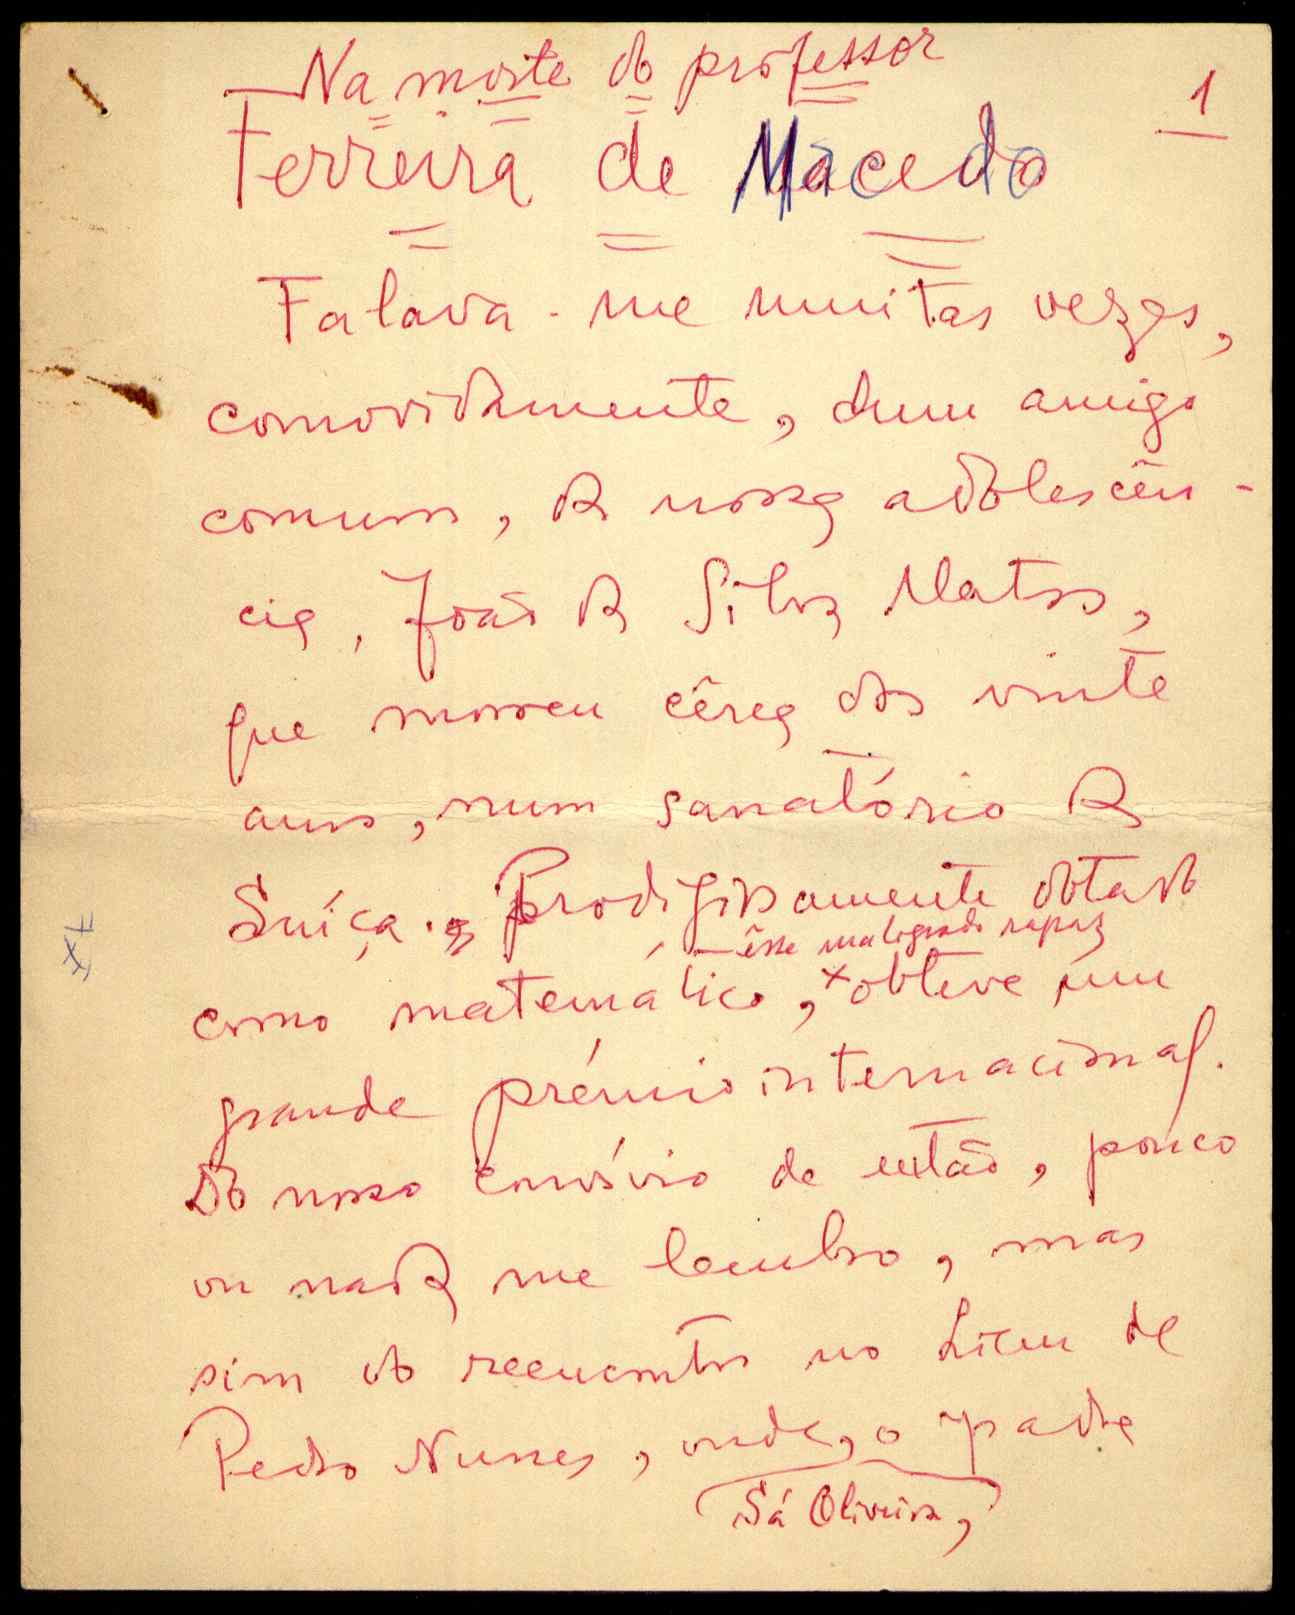 Na morte do professor
1
Ferreira de Macedo
Falava-me muitas vezes,
comovidamente, dum amigo
comum, da nossa adolescên-
cia, João da Silva Matos,
que morreu cêrca dos vinte
anos, num sanatório da
Suíça. Prodigiosamente dotado
êsse malogrado rapaz
como matemático, x obteve um
grande prémio internacional.
Do nosso convívio de então, pouco
ou nada me lembro, mas
sim do reencontro no Liceu de
Pedro Nunes, onde, o padre
Sá Oliveira,